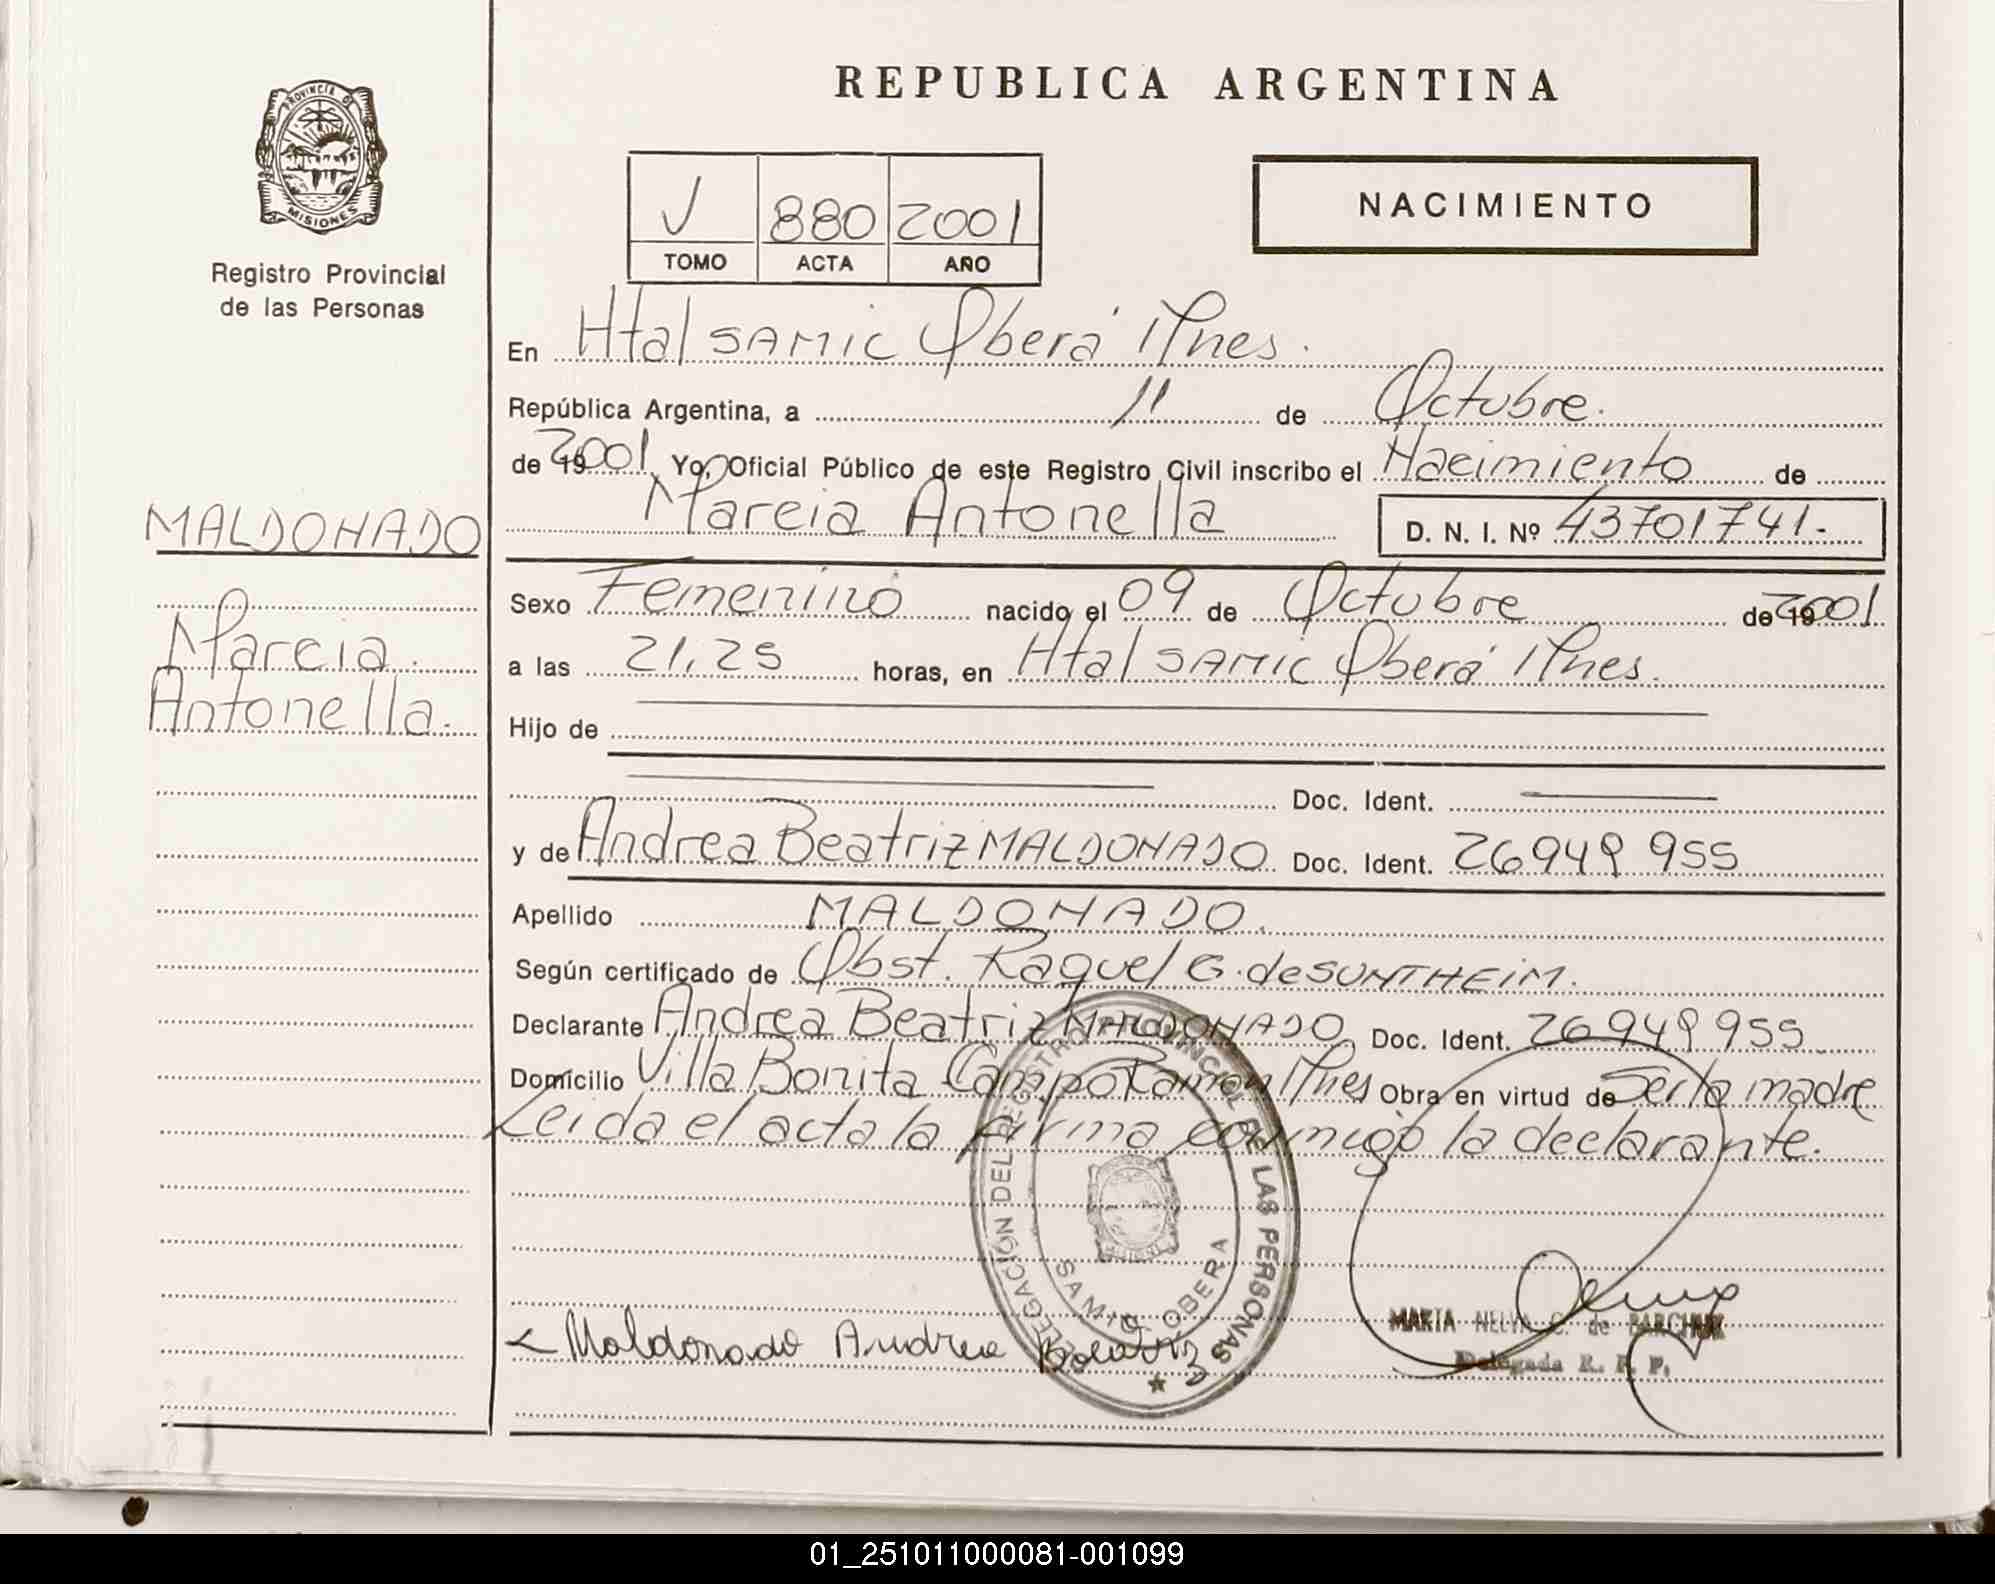 PROVINCIA D
MISIONES
Registro Provincial
de las Personas
REPUBLICA ARGENTINA
NACIMIENTO
V 880 2001
TOMO ACTA AÑO
En Htal SAMIC Oberá Mnes.
República Argentina, a 11 de Octubre.
de 19 2001 Yo, Oficial Público de este Registro Civil inscribo el Nacimiento de
Marcia Antonella
D. N. I. Nº 43701741.-
MALDONADO
Marcia
Antonella.
Sexo Femenino nacido el 09 de Octubre de 19 2001
a las 21,25 horas, en Htal SAMIC Oberá Mnes.
Hijo de
Doc. Ident.
y de Andrea Beatriz MALDONADO Doc. Ident. 26949955
Apellido MALDONADO.
Según certificado de Obst. Raquel G. de SUNTHEIM.
Declarante Andrea Beatriz MALDONADO Doc. Ident. 26949955
Domicilio Villa Bonita Campo Ramon Mnes Obra en virtud de Ser la madre
Leida el acta la firma conmigo la declarante.
DELEGACIÓN DEL REGISTRO PROVINCIAL DE LAS PERSONAS
SAMIC OBERA
Maldonado Andrea Beatriz
MARIA NELYA C. de BARCHUK
Delegada R. P. P.
01_251011000081-001099